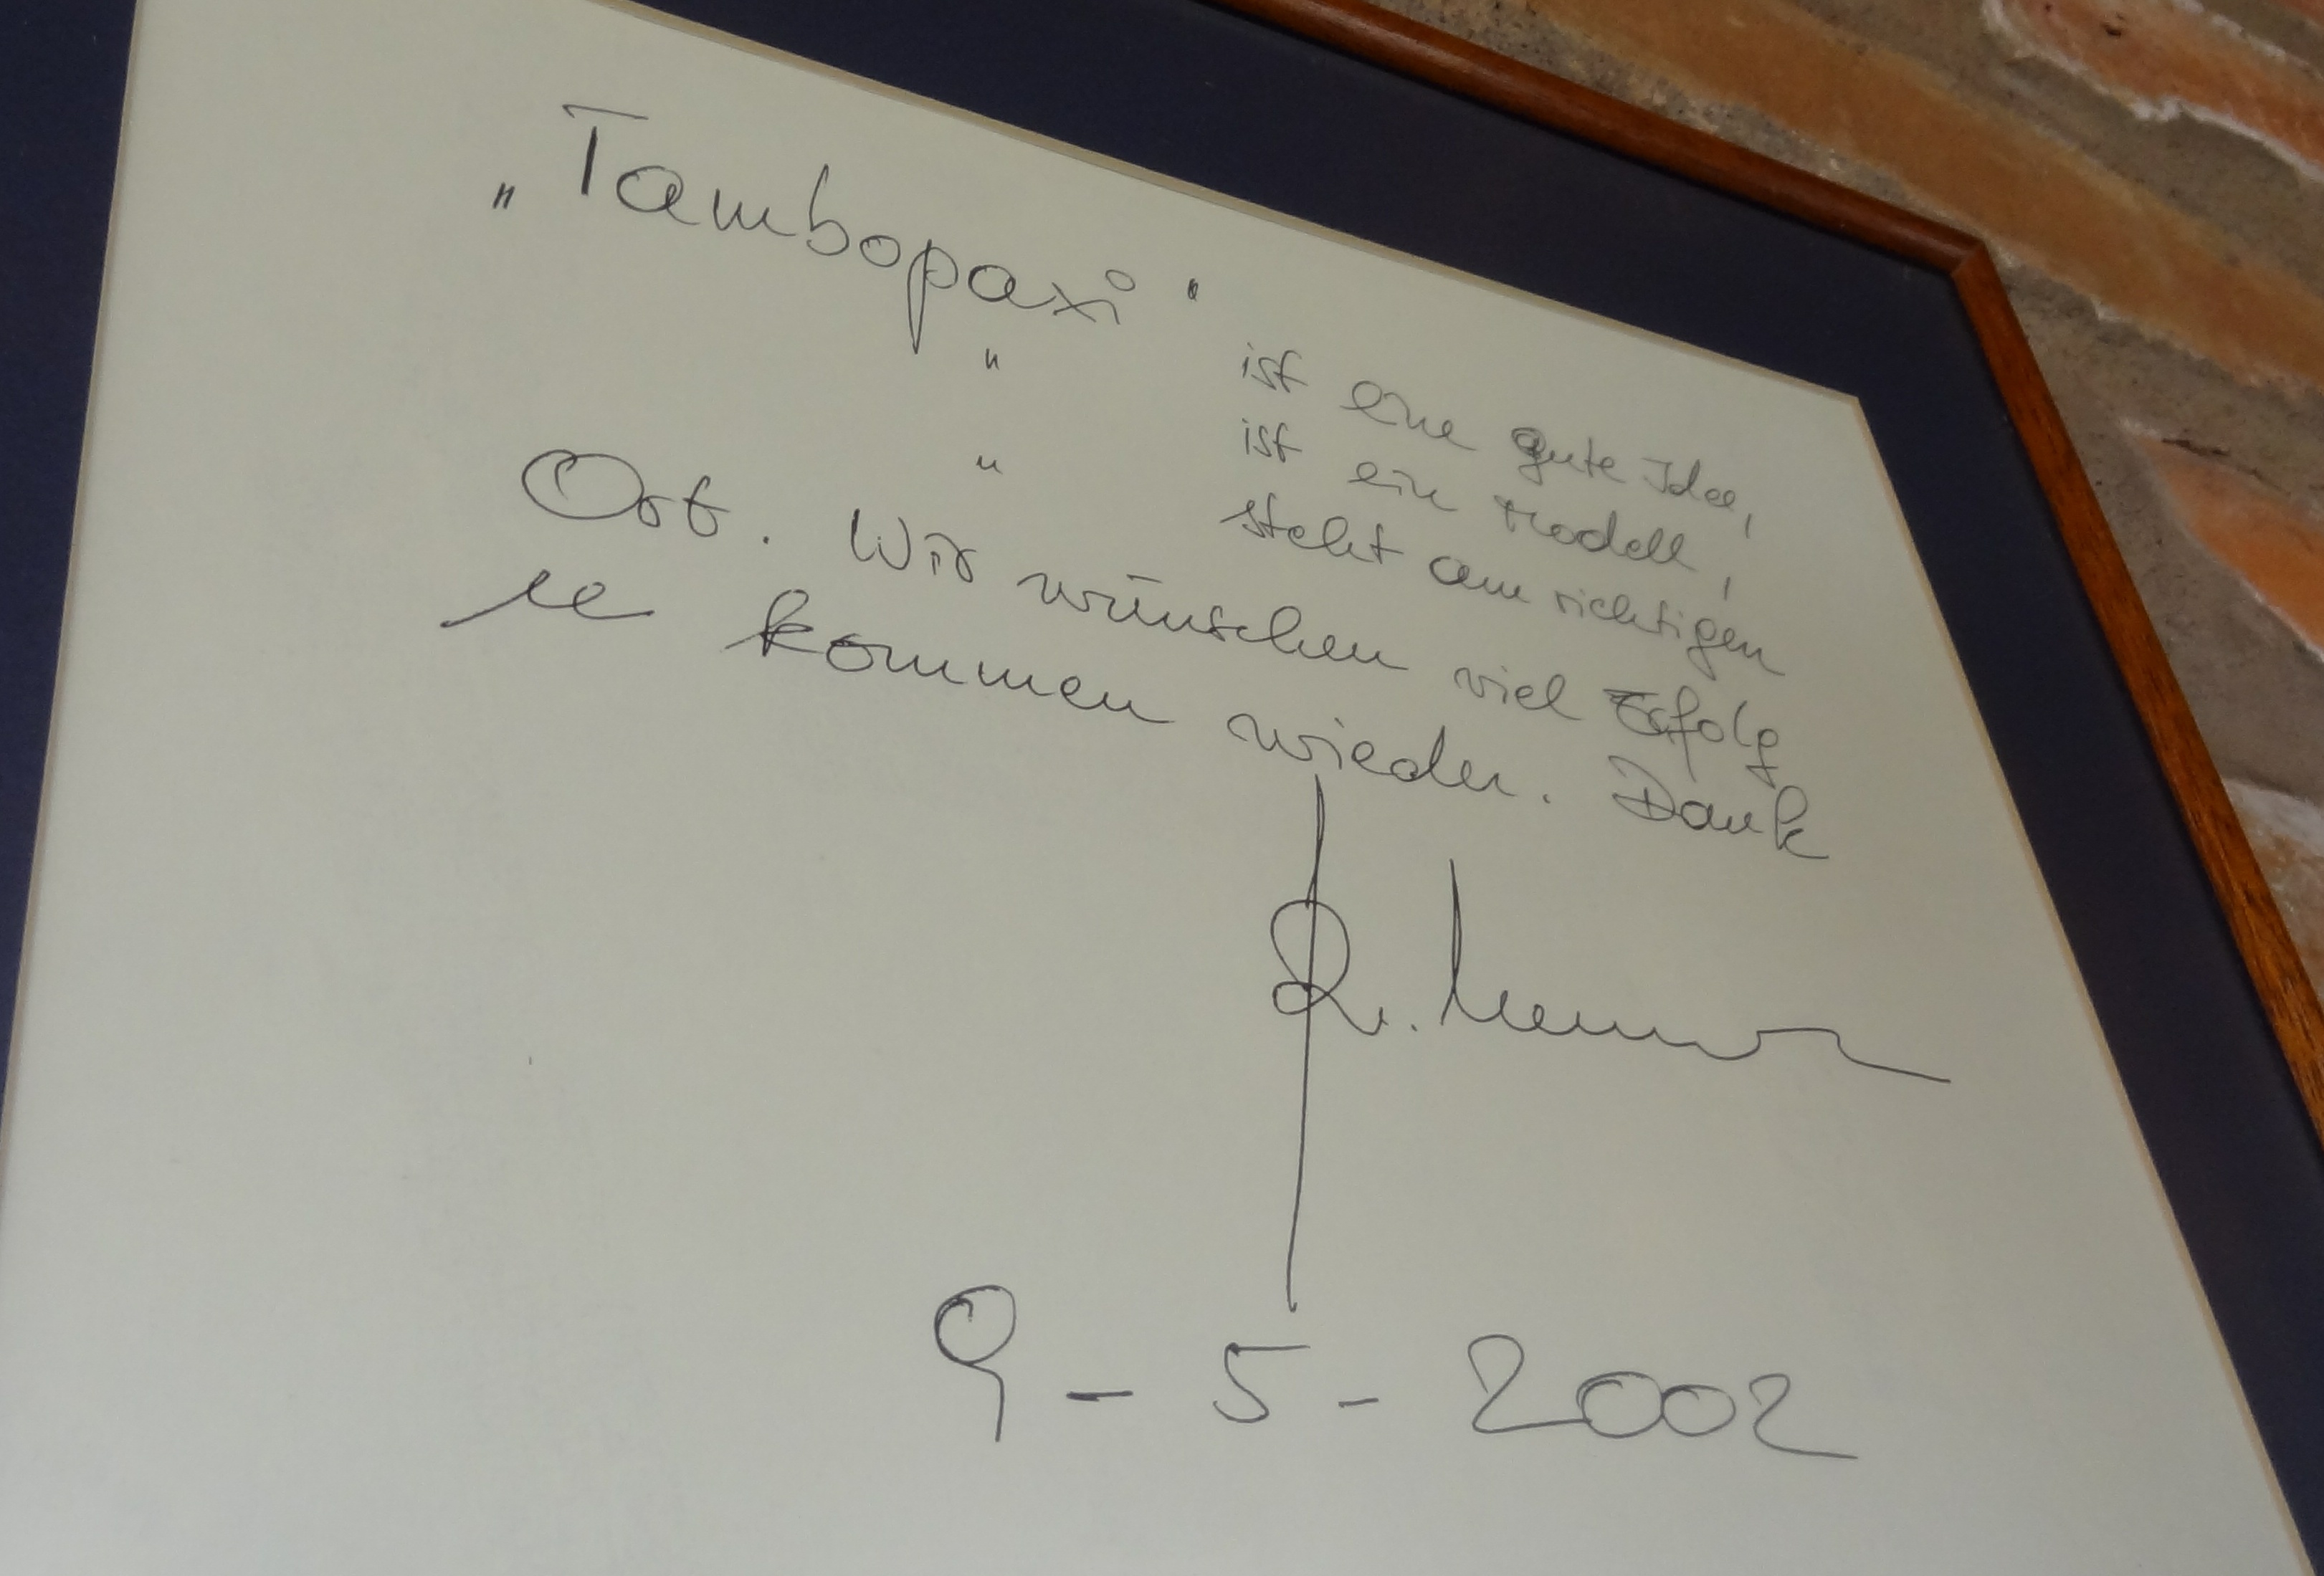 „Tambopaxi" ist eine gute Idee,
" ist ein Modell,
" steht am richtigen
Ort. Wir wünschen viel Erfolg
kommen wieder. Dank
9 - 5 - 2002